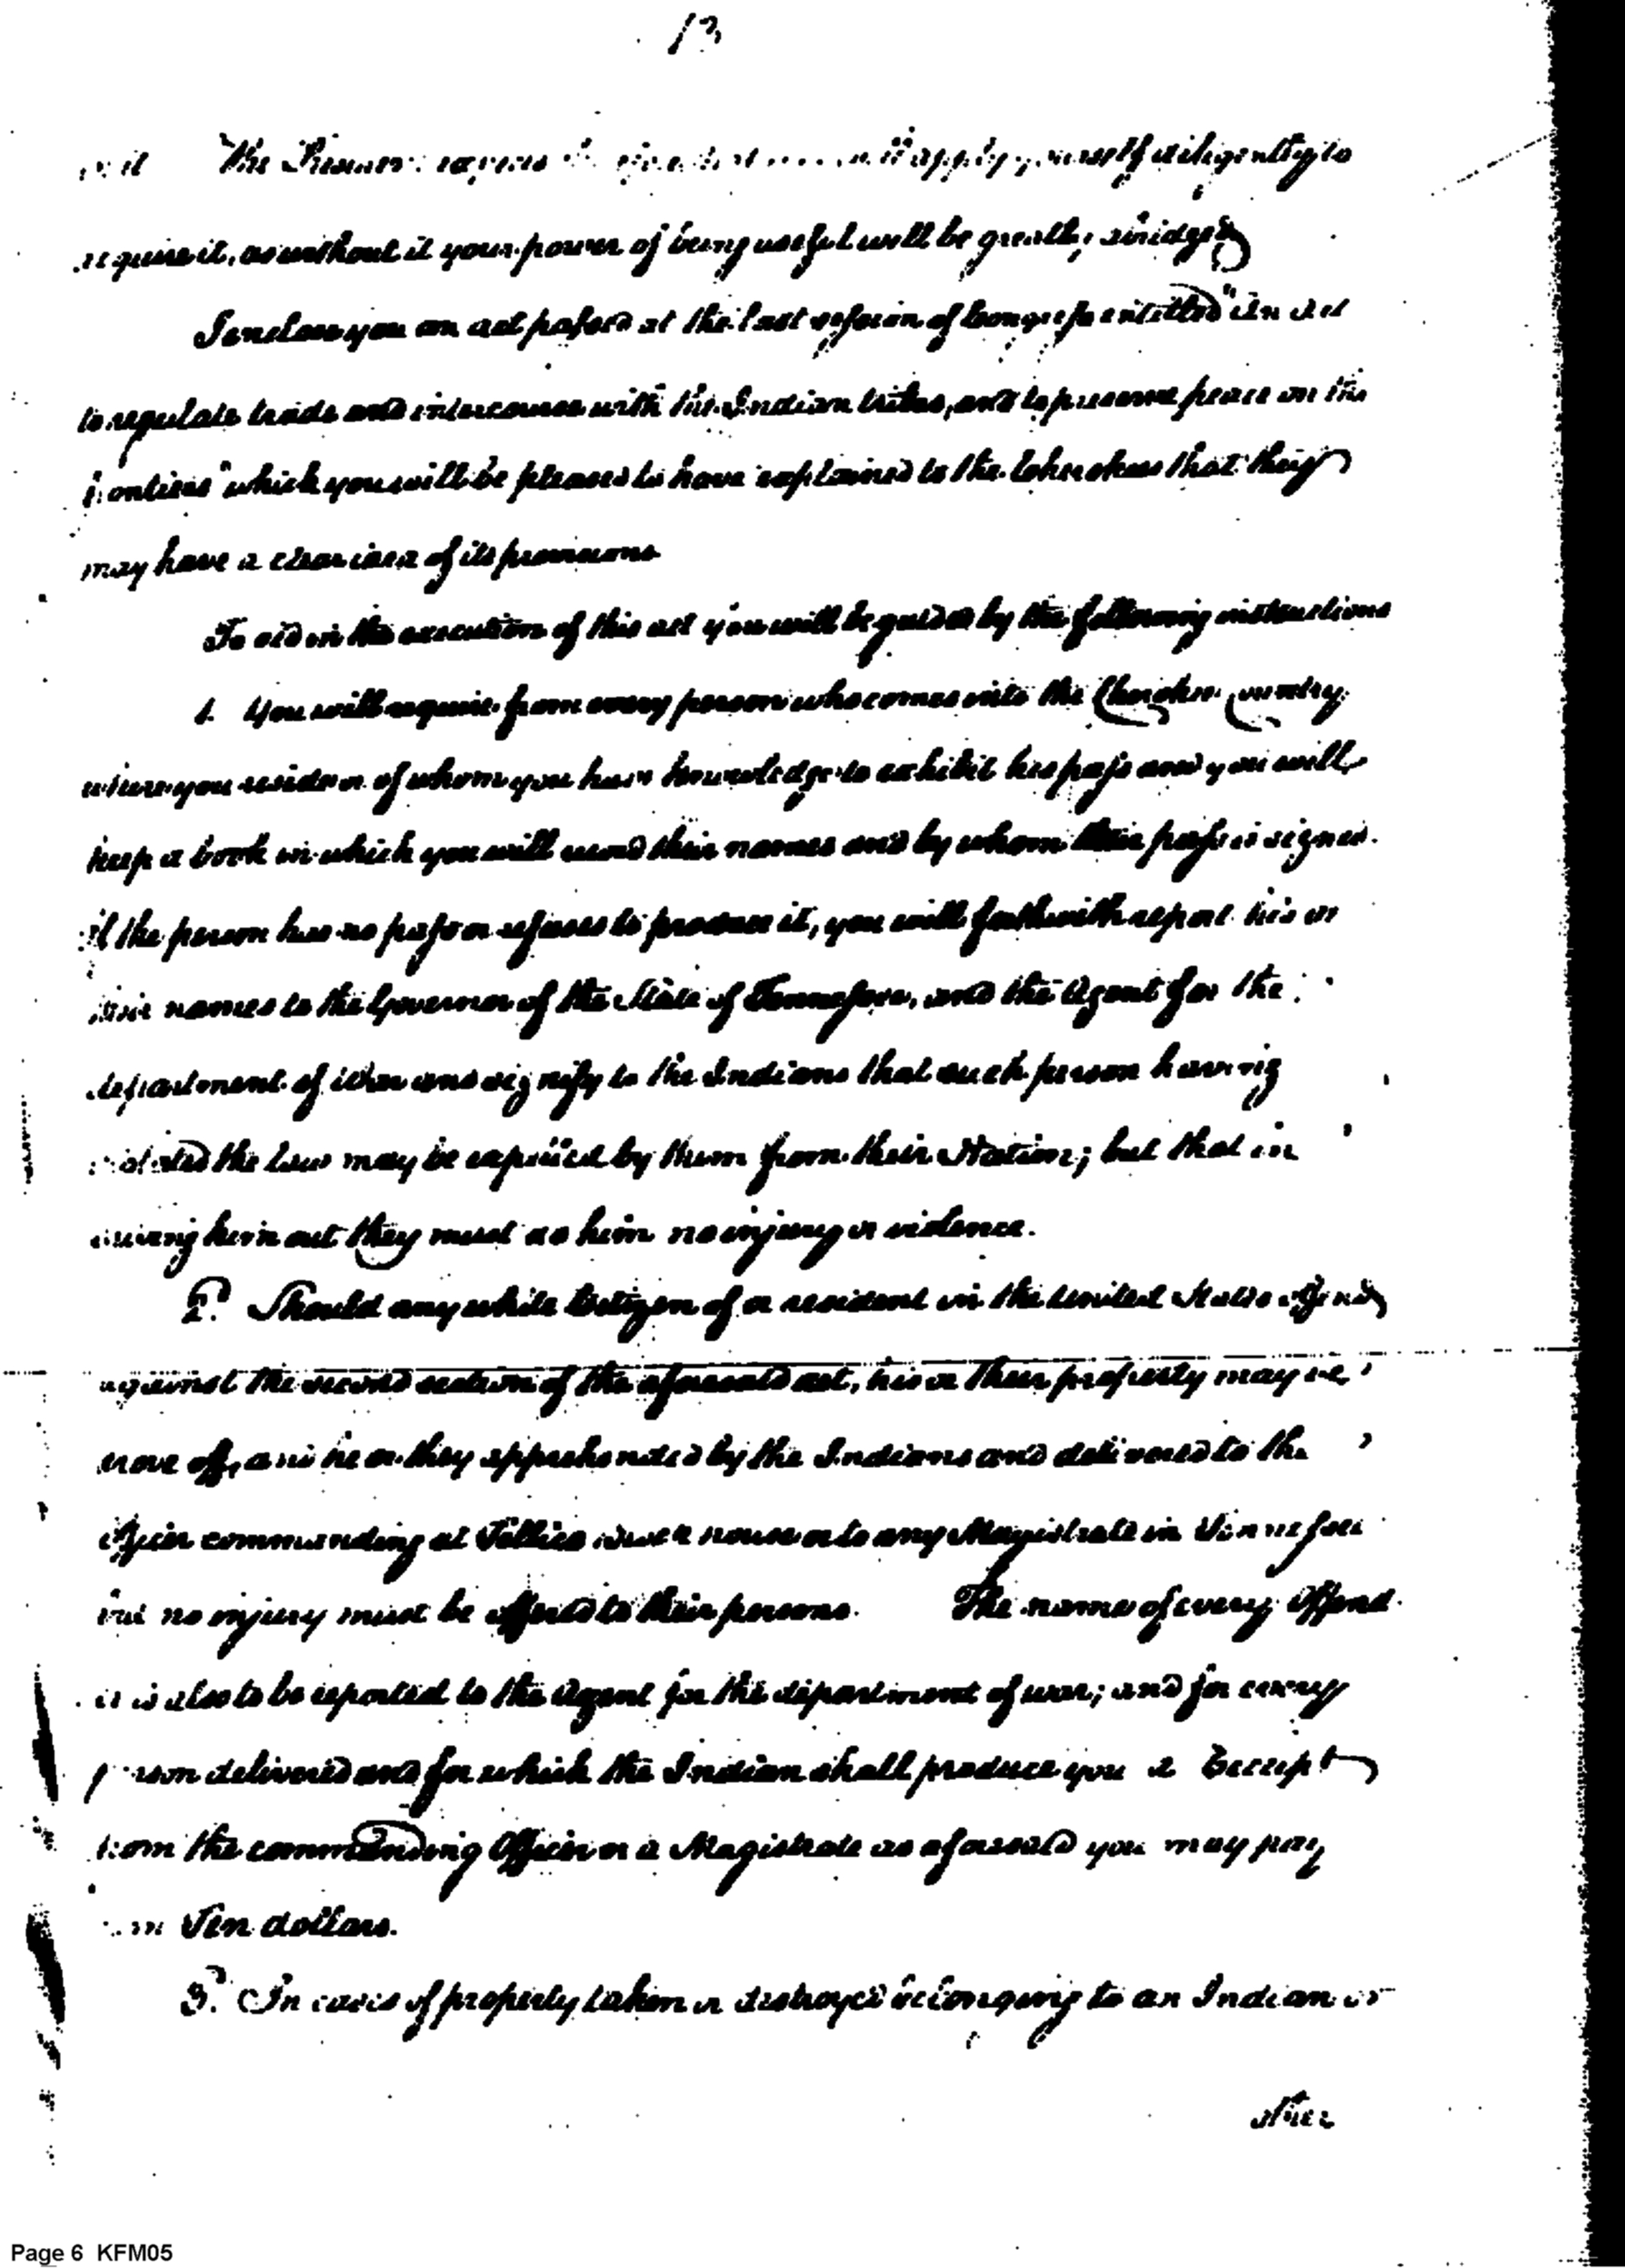 13
it The expects apply yourself diligently to
acquire it, as without it your power of being useful will be greatly abridged
I enclose you an act passed at the last session of Congress entitled "An Act
to regulate trade and intercourse with the Indian tribes, and to preserve peace on the
frontiers" which you will be pleased to have explained to the Cherokees that they
may have a clear idea of its provisions
To aid in the execution of this act you will be guided by the following instructions
1. You will require from every person who comes into the Cherokee Country
where you reside or of whom you have knowledge to exhibit his pass and you will
keep a book in which you will record their names and by whom their pass is signed.
if the person has no pass or refuses to produce it, you will forthwith report his or
their names to the Governor of the State of Tennessee, and the Agent for the
department of war and signify to the Indians that such person having
violated the law may be expelled by them from their Nation; but that in
driving him out they must do him no injury or violence.
2. Should any white Citizen of or resident in the United States offend
against the second section of the aforesaid act, his or their property may be
drove off, and he or they apprehended by the Indians and delivered to the
officer commanding at Tellico Block house or to any Magistrate in Tennessee
but no injury must be offered to their persons. The name of every offend
er is also to be reported to the Agent for the department of war; and for every
person delivered and for which the Indian shall produce you a Receipt
from the commanding Officer or a Magistrate as aforesaid you may pay
him Ten dollars.
3. In cases of property taken or destroyed belonging to an Indian or
Page 6 KFM05